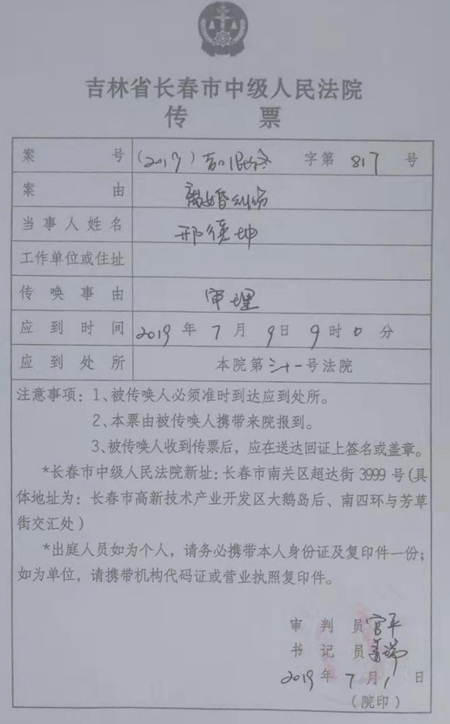 吉林省长春市中级人民法院
传 票
案 号 (2019) 吉01民终 字第 817 号
案 由 离婚纠纷
当事人姓名 邢德坤
工作单位或住址
传唤事由 审理
应到时间 2019 年 7 月 9 日 9 时 0 分
应到处所 本院第三十一号法院
注意事项：1、被传唤人必须准时到达应到处所。
2、本票由被传唤人携带来院报到。
3、被传唤人收到传票后，应在送达回证上签名或盖章。
*长春市中级人民法院新址：长春市南关区超达街 3999 号(具
体地址为：长春市高新技术产业开发区大鹅岛后、南四环与芳草
街交汇处）
*出庭人员如为个人，请务必携带本人身份证及复印件一份；
如为单位，请携带机构代码证或营业执照复印件。
审 判 员 宫平
书 记 员
2019 年 7 月 1 日
（院印）